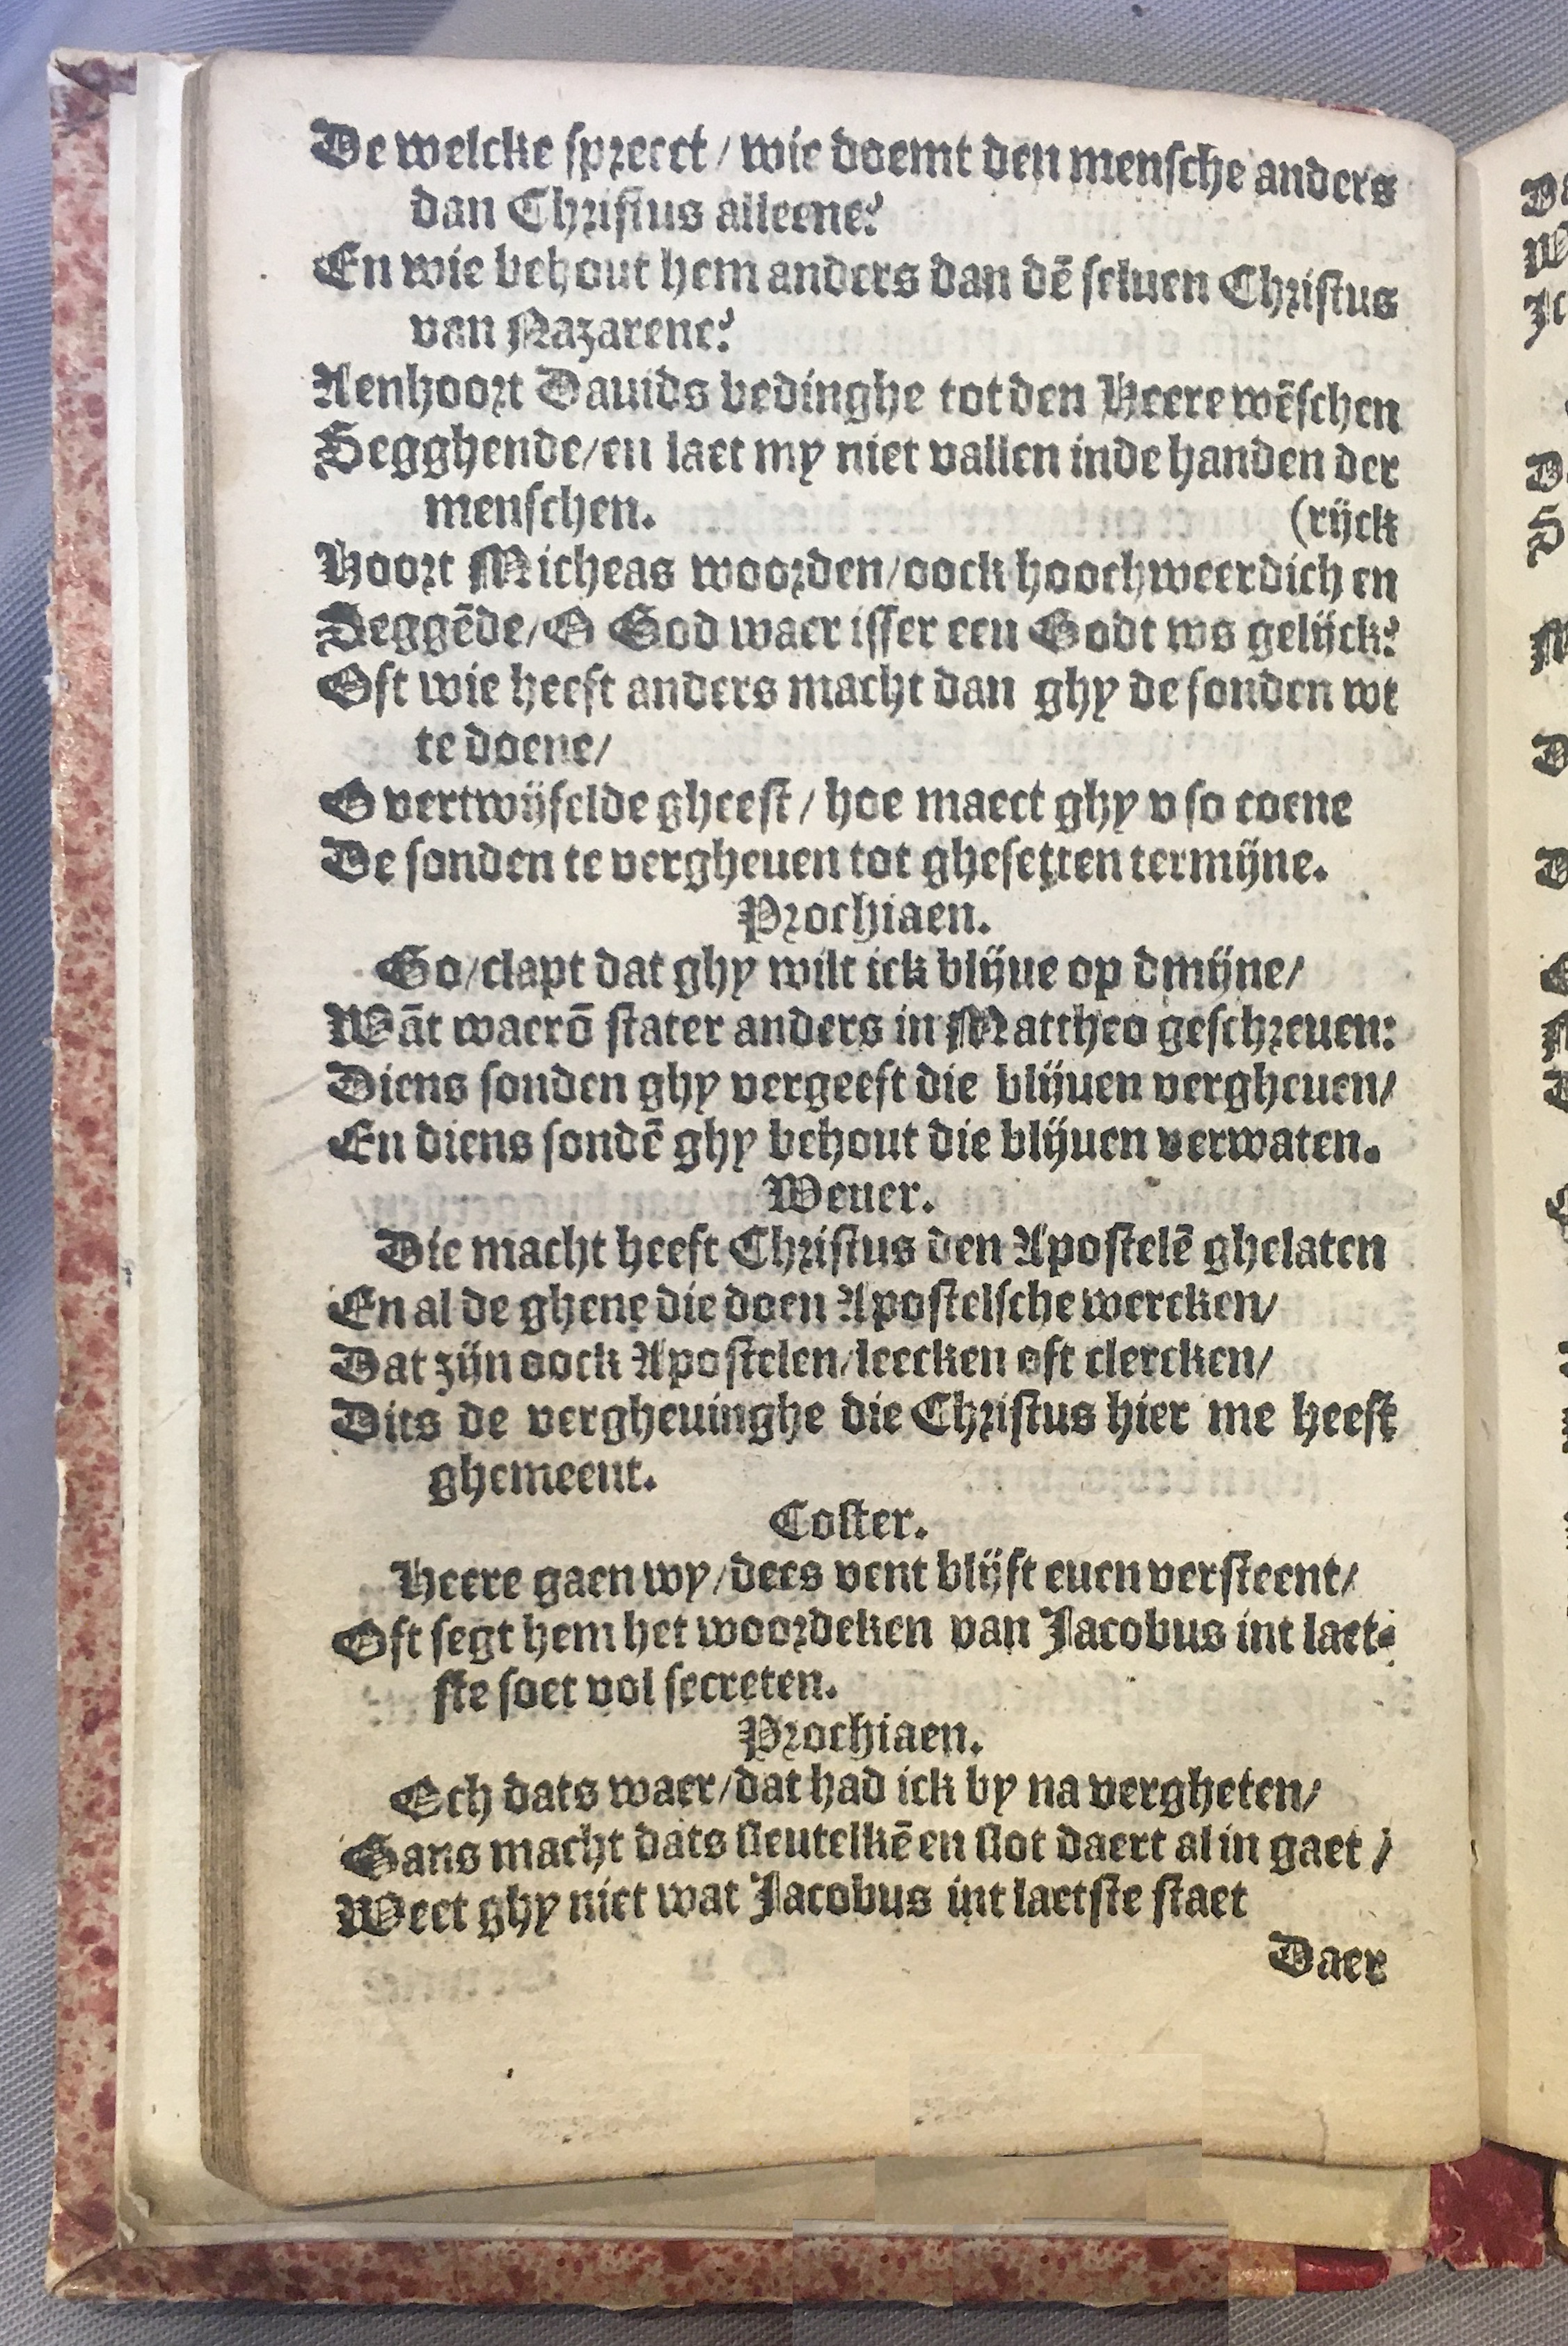 De welcke spreect / wie doemt den mensche anders
dan Christus alleene?
En wie behout hem anders dan dē seluen Christus
van Nazarene?
Aenhoort Dauids bedinghe tot den Heere wēschen
Segghende/en laet my niet vallen inde handen der
menschen. (rijck
Hoort Micheas woorden/oock hoochweerdich en
Seggēde/O God waer isser een Godt ws gelijck?
Oft wie heeft anders macht dan ghy de sonden wt
te doene/
O vertwijfelde gheest / hoe maect ghy v so coene
De sonden te vergheuen tot ghesetten termijne.
Prochiaen.
Go/clapt dat ghy wilt ick blijue op dmijne/
Wāt waerō stater anders in Mattheo geschreuen:
Diens sonden ghy vergeeft die blijuen vergheuen/
En diens sondē ghy behout die blijuen verwaten.
Weuer.
Die macht heeft Christus den Apostelē ghelaten
En al de ghene die doen Apostelsche wercken/
Dat zijn oock Apostelen/leecken oft clercken/
Dits de vergheuinghe die Christus hier me heeft
ghemeent.
Coster.
Heere gaen wy/dees vent blijft euen versteent/
Oft segt hem het woordeken van Jacobus int laet-
ste soet vol secreten.
Prochiaen.
Och dats waer/dat had ick by na vergheten/
Gans macht dats sleutelkē en slot daert al in gaet /
Weet ghy niet wat Jacobus int laetste staet
Daer